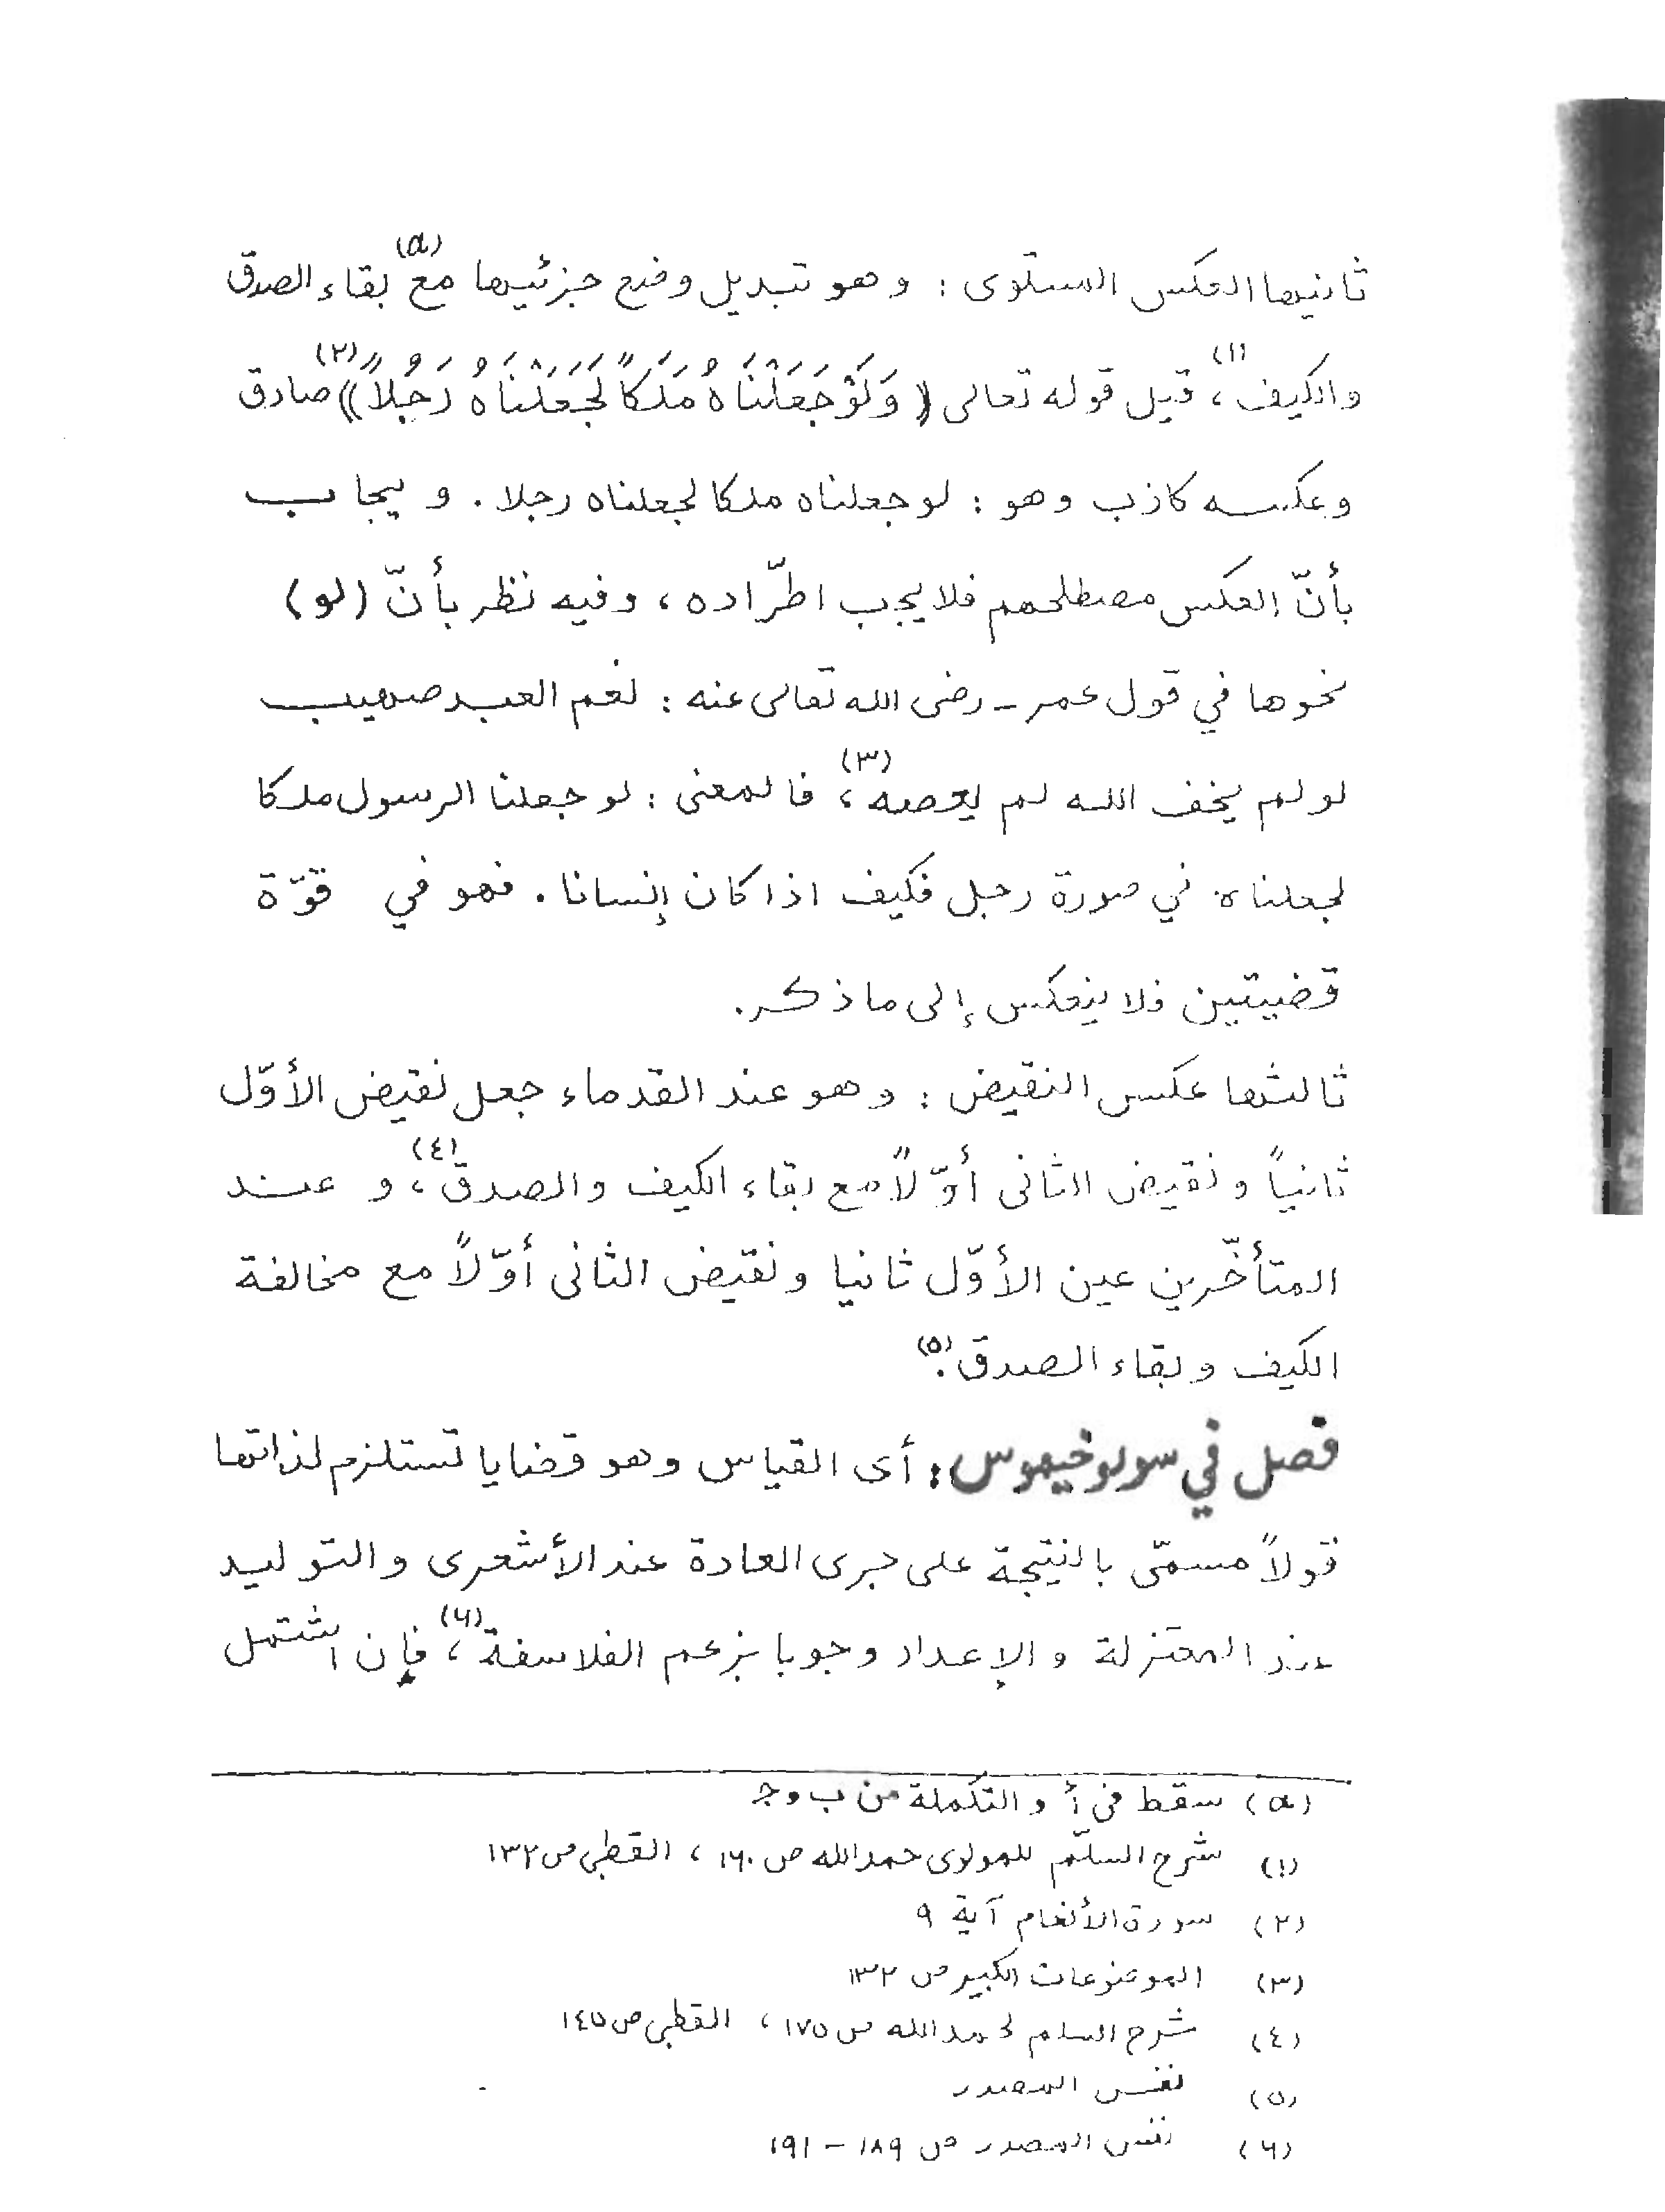 ثانيها العكس المستوى : وهو تبديل وضع جزئيها مع(a) بقاء الصدق
والكيف(١)، قيل قوله تعالى ((وَلَوْ جَعَلْنَاهُ مَلَكاً لَجَعَلْنَاهُ رَجُلاً))(٢) صادق
وعكسه كاذب وهو : لو جعلناه ملكا لجعلناه رجلا . و يجاب
بأنّ العكس مصطلحهم فلا يجب اطّراده ، وفيه نظر بأنّ (لو)
نحوها في قول عمر - رضى الله تعالى عنه : نعم العبد صهيب
لو لم يخف الله لم يعصه(٣)، فالمعنى : لو جعلنا الرسول ملكا
لجعلناه في صورة رجل فكيف اذا كان إنسانا . فهو في قوّة
قضيتين فلا ينعكس إلى ما ذكر.
ثالثها عكس النقيض : وهو عند القدماء جعل نقيض الأوّل
ثانياً ونقيض الثانى أوّلاً مع بقاء الكيف والصدق(٤)، و عند
المتأخّرين عين الأوّل ثانيا ونقيض الثانى أوّلاً مع مخالفة
الكيف وبقاء الصدق(٥).
فصل في سولوخيموس : أى القياس وهو قضايا تستلزم لذاتها
قولاً مسمّى بالنتيجة على جرى العادة عند الأشعرى والتوليد
عند المعتزلة و الإعداد وجوبا بزعم الفلاسفة(٦)، فإن اشتمل
(a) سقط في أ و التكملة من ب وجـ
(١) شرح السلّم للمولوى حمدالله ص ١٦٠ ، القطبي ص ١٣٢
(٢) سورة الأنعام آية ٩
(٣) الموضوعات الكبير ص ١٣٢
(٤) شرح السلم لحمدالله ص ١٧٥ ، القطبي ص ١٤٥
(٥) نفس المصدر
(٦) نفس المصدر ص ١٨٩ - ١٩١